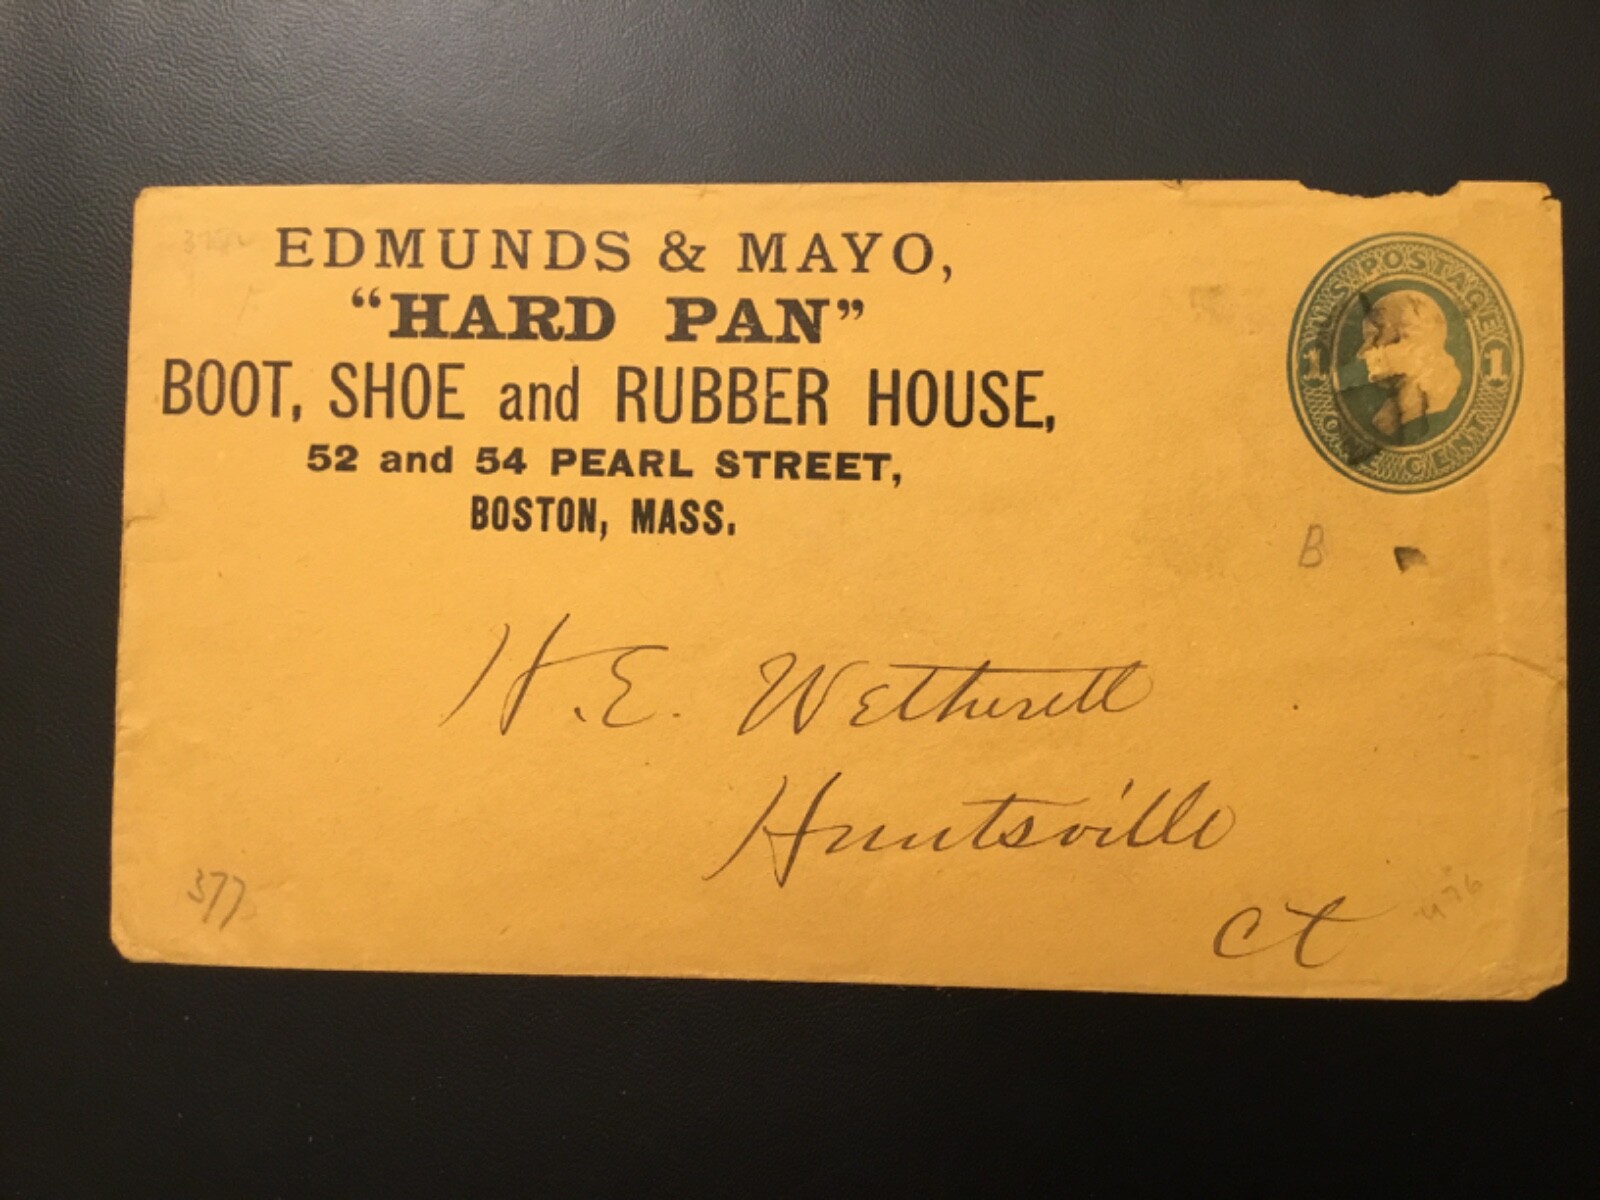 EDMUNDS & MAYO,
“HARD PAN”
BOOT, SHOE and RUBBER HOUSE,
52 and 54 PEARL STREET,
BOSTON, MASS.
U.S. POSTAGE
1 1
ONE CENT
B
H. E. Wetherell
Huntsville
Ct
377